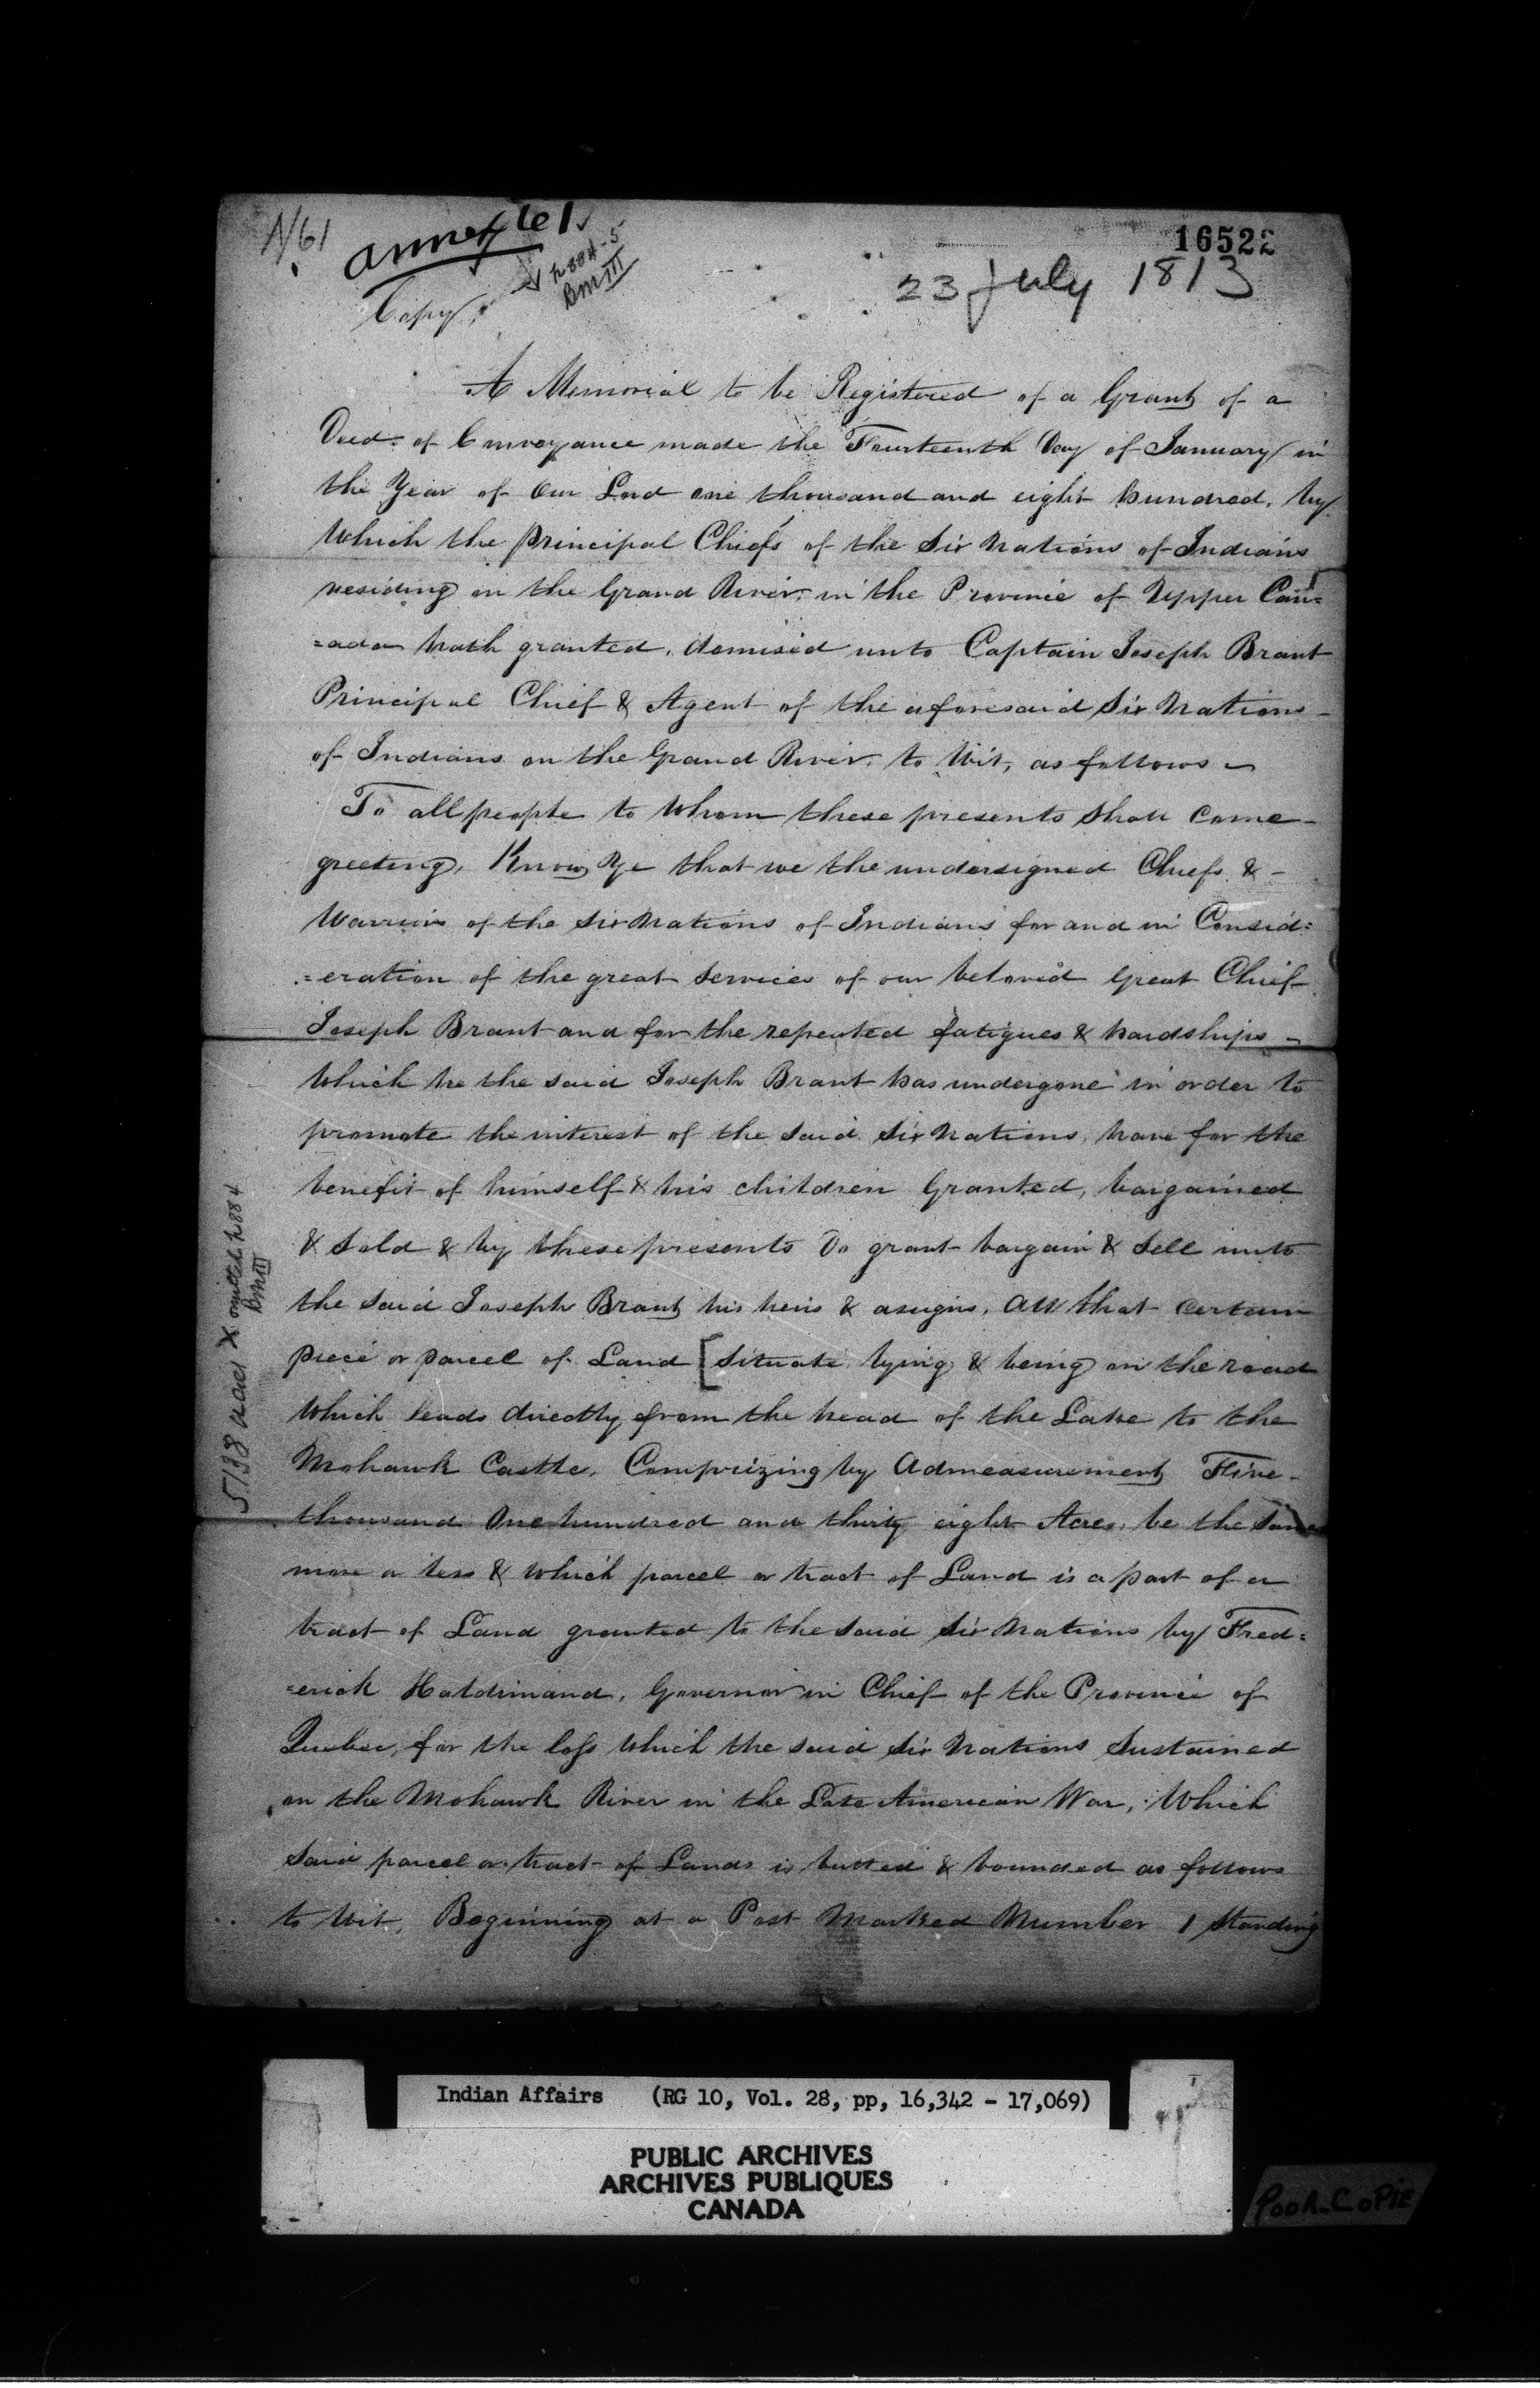 N/61
annex 161
p 884-5
BM III
Copy.
16522
23 July 1813
A Memorial to be Registered of a Grant of a
Deed of Conveyance made the Fourteenth Day of January in
the Year of Our Lord one thousand and eight hundred, by
Which the principal Chiefs of the Six Nations of Indians
residing on the Grand River in the Province of Upper Can=
=ada hath granted, demised unto Captain Joseph Brant
Principal Chief & Agent of the aforesaid Six Nations
of Indians on the Grand River, to Wit, as follows
To all people to Whom these presents Shall come
greeting, Know Ye that we the undersigned Chiefs &
Warriors of the Six Nations of Indians for and in Consid=
=eration of the great Services of our beloved Great Chief
Joseph Brant and for the repeated fatigues & hardships
Which he the said Joseph Brant has undergone in order to
promote the interest of the said Six Nations, have for the
benefit of himself & his children Granted, bargained
& Sold & by these presents Do grant bargain & Sell unto
the said Joseph Brant his heirs & assigns, All that certain
piece or parcel of Land [Situate, lying & being on the road
Which leads directly from the head of the Lake to the
Mohawk Castle, Comprizing by Admeasurement Five
thousand One hundred and thirty eight Acres, be the Same
more or less & Which parcel or tract of Land is a part of a
tract of Land granted to the said Six Nations by Fred=
=erick Haldimand, Governor in Chief of the Province of
Quebec, for the loss Which the said Six Nations Sustained
on the Mohawk River in the Late American War, Which
Said parcel or tract of Lands is butted & bounded as follows
to Wit, Beginning at a Post Marked Number 1 Standing
5138 acres X omitted p 884
BM III
Indian Affairs (RG 10, Vol. 28, pp, 16,342 - 17,069)
PUBLIC ARCHIVES
ARCHIVES PUBLIQUES
CANADA
POOR COPIE